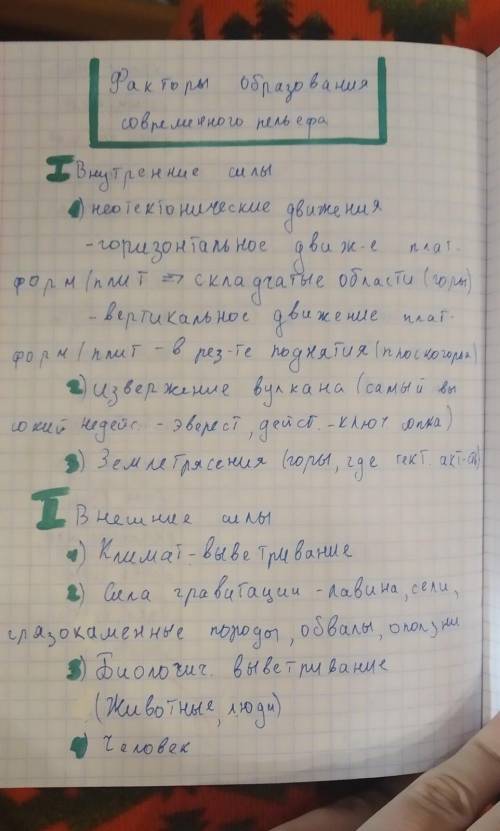 Факторы образования
современного рельефа
I Внутренние силы
1) неотектонические движения
- горизонтальное движ-е плат-
форм/плит => складчатые области (горы)
- вертикальное движение плат-
форм/плит - в рез-те поднятия (плоскогорья)
2) извержение вулкана (самый вы
сокий недейс. - Эверест, дейст. - Ключ. сопка)
3) Землетрясения (горы, где тект. акт-ть)
II Внешние силы
1) Климат - выветривание
2) Сила гравитации - лавина, сели,
грязокаменные породы, обвалы, оползни
3) Биологич. выветривание
(Животные, люди)
4) Человек